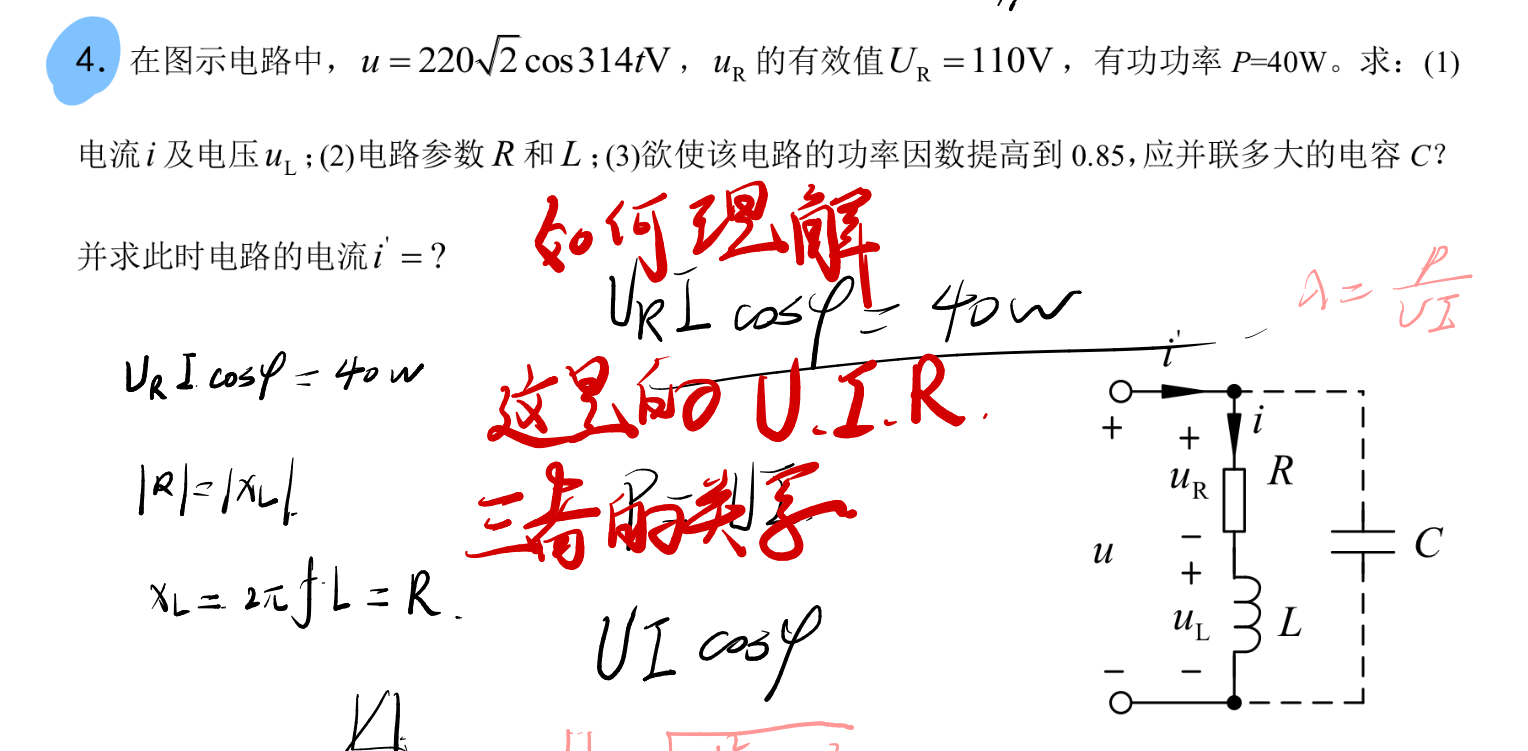 4. 在图示电路中，u = 220√2 cos314tV，u_R 的有效值 U_R = 110V，有功功率 P=40W。求：(1)
电流 i 及电压 u_L；(2)电路参数 R 和 L；(3)欲使该电路的功率因数提高到 0.85，应并联多大的电容 C？
并求此时电路的电流 i' = ?
如何理解
λ = P/UI
U_R I cosφ = 40W
U_R I cosφ = 40W
这里的 U.I.R.
|R|=|X_L|
三者的关系
X_L = 2πfL = R.
UI cosφ
i'
+
i
+
u_R
R
−
u
C
+
u_L
L
−
−